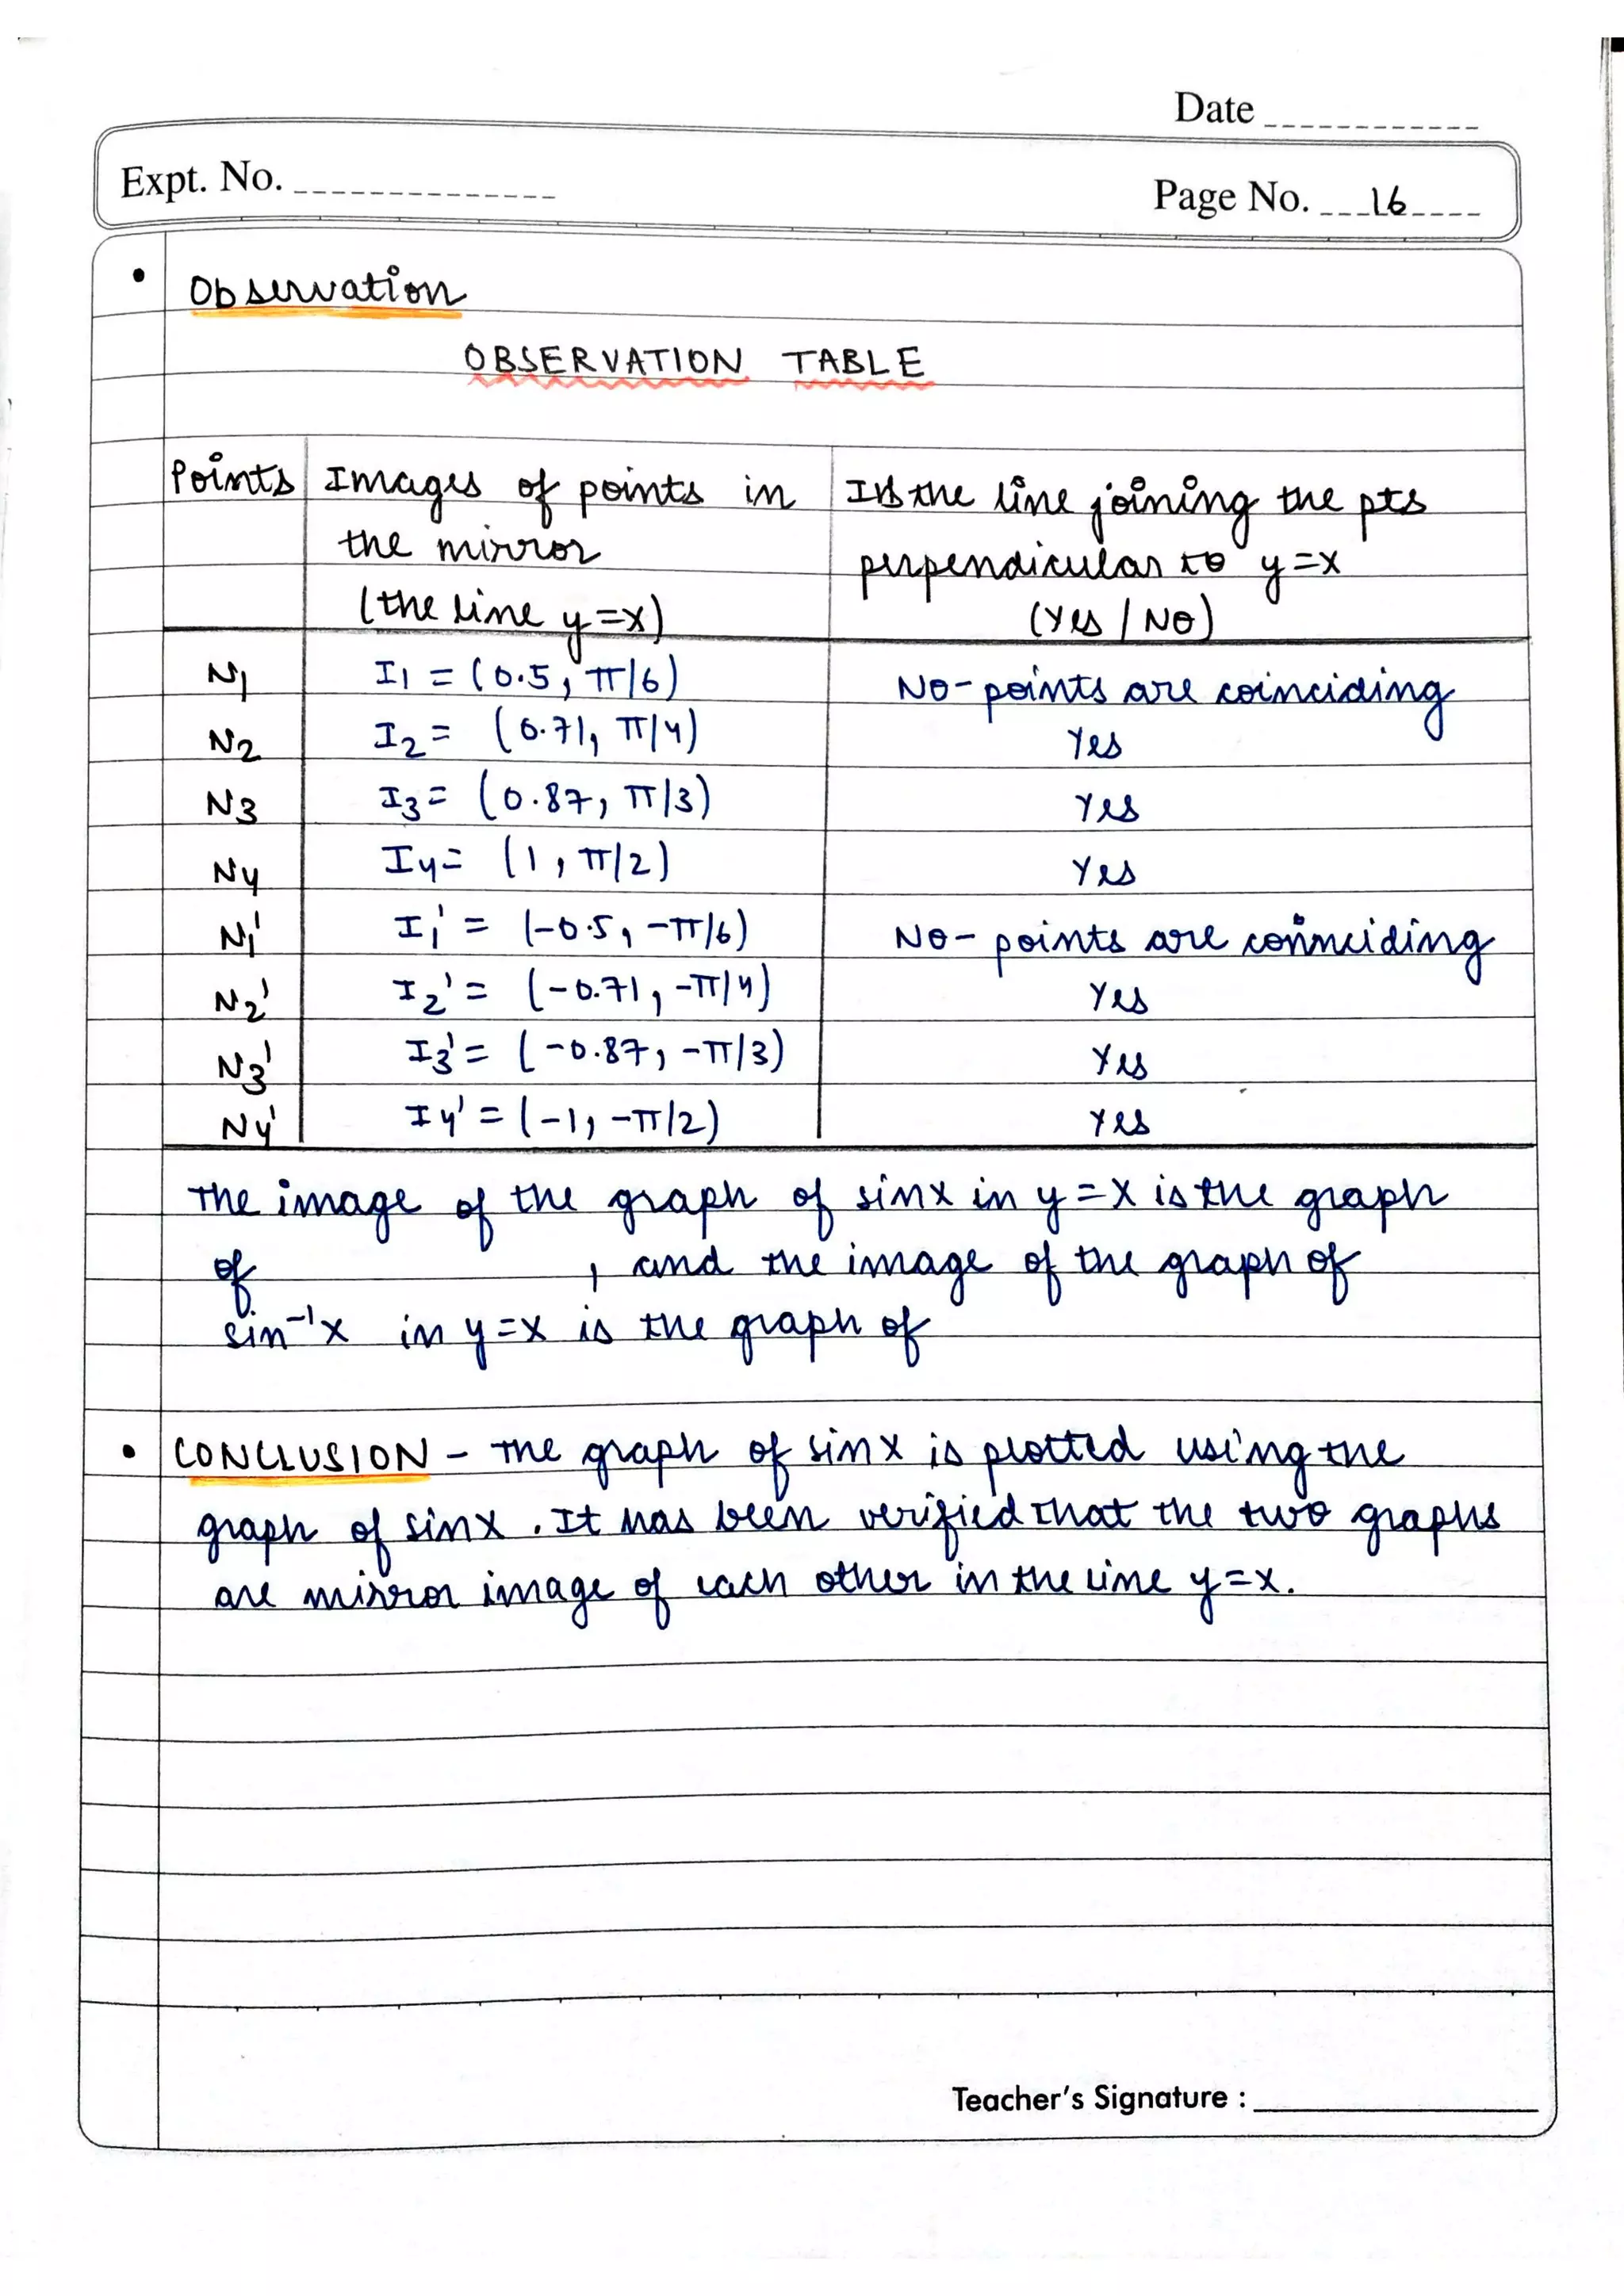 Date
Expt. No.
Page No. 16
• Observation
OBSERVATION TABLE
Points | Images of points in the mirror (the line y=x) | Is the line joining the pts perpendicular to y=x (Yes / No)
N1 | I1 = (0.5, π/6) | No- points are coinciding
N2 | I2 = (0.71, π/4) | Yes
N3 | I3 = (0.87, π/3) | Yes
N4 | I4 = (1, π/2) | Yes
N1' | I1' = (-0.5, -π/6) | No- points are coinnciding
N2' | I2' = (-0.71, -π/4) | Yes
N3' | I3' = (-0.87, -π/3) | Yes
N4' | I4' = (-1, -π/2) | Yes
The image of the graph of sinx in y=x is the graph
of , and the image of the graph of
sin⁻¹x in y=x is the graph of
• CONCLUSION - The graph of sinx is plotted using the
graph of sinx. It has been verified that the two graphs
are mirror image of each other in the line y=x.
Teacher's Signature :